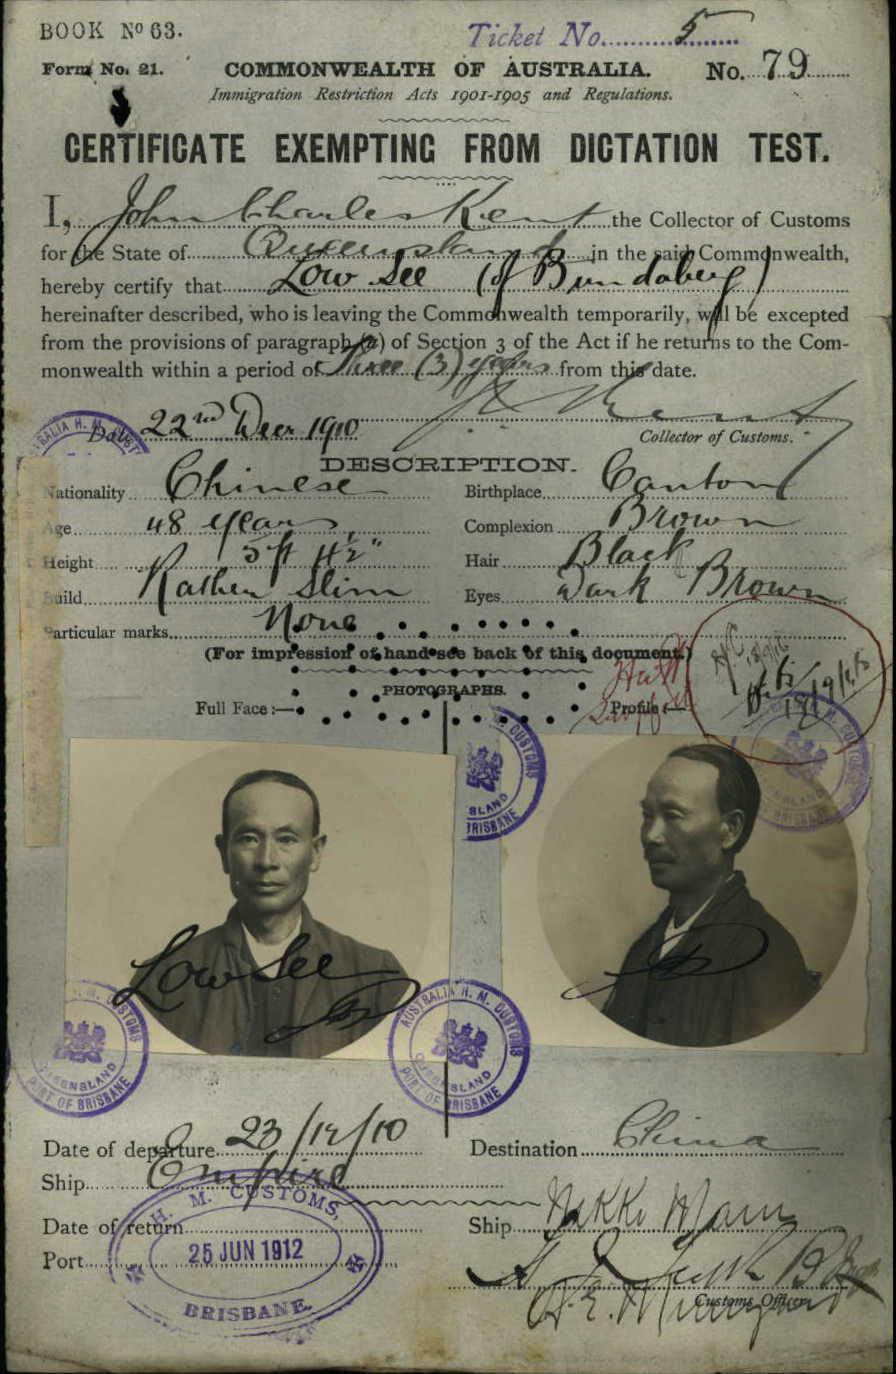 BOOK Nº 63.
Ticket No. 5
Form No. 21.
COMMONWEALTH OF AUSTRALIA.
No. 79
Immigration Restriction Acts 1901-1905 and Regulations.
CERTIFICATE EXEMPTING FROM DICTATION TEST.
I, John Charles Kent the Collector of Customs
for the State of Queensland in the said Commonwealth,
hereby certify that Low See (of Bundaberg)
hereinafter described, who is leaving the Commonwealth temporarily, will be excepted
from the provisions of paragraph (a) of Section 3 of the Act if he returns to the Com-
monwealth within a period of Three (3) years from this date.
Date 22nd Decr 1910
Collector of Customs.
DESCRIPTION.
Nationality Chinese
Birthplace Canton
Age 48 years
Complexion Brown
Height 5 ft 4½"
Hair Black
Build Rather Slim
Eyes Dark Brown
Particular marks None
(For impression of hand see back of this document.)
PHOTOGRAPHS.
Full Face:—
Profile:—
QUEENSLAND
PORT OF BRISBANE
Low See
AUSTRALIA H. M. CUSTOMS
QUEENSLAND
PORT OF BRISBANE
AUSTRALIA H. M. CUSTOMS
QUEENSLAND
PORT OF BRISBANE
Date of departure 23/12/10
Destination China
Ship Empire
Date of return
Ship Nikko Maru
Port
H. M. CUSTOMS,
25 JUN 1912
BRISBANE
Customs Officer